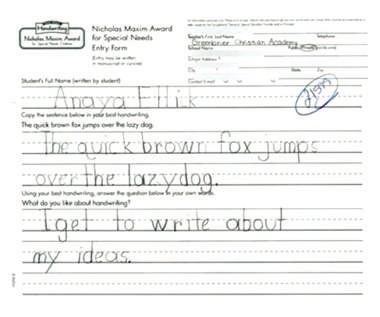 Handwriting
Nicholas Maxim Award
for Special Needs
Nicholas Maxim Award
for Special Needs
Entry Form
(Entry may be written
in manuscript or cursive)
Teacher's First, Last Name
Telephone
Greenbrier Christian Academy
School Name
School Address
City
State
Zip
Student's Full Name (written by student)
Anaya Ellick
Copy the sentence below in your best handwriting.
The quick brown fox jumps over the lazy dog.
The quick brown fox jumps
over the lazy dog.
Using your best handwriting, answer the question below in your own words.
What do you like about handwriting?
I get to write about
my ideas.